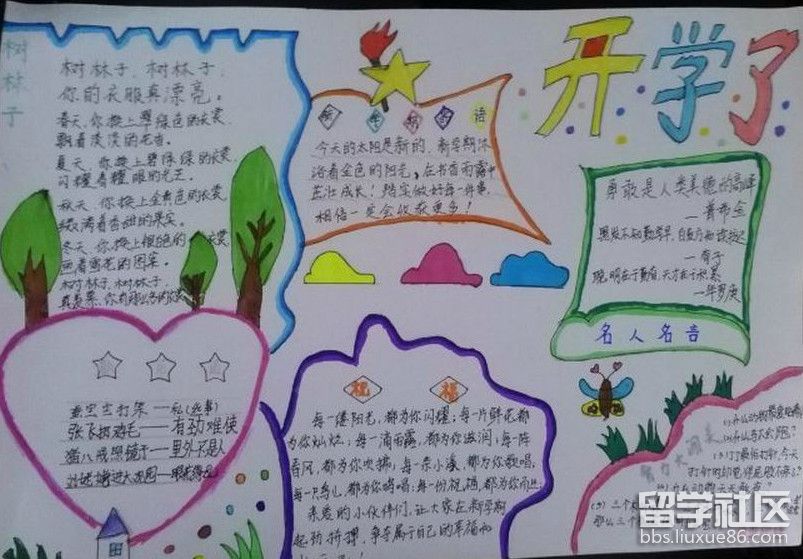 开学了
树林子
树林子，树林子，
你的衣服真漂亮。
春天，你换上翠绿色的衣裳，
飘着淡淡的花香。
夏天，你换上碧绿绿的衣裳，
闪耀着耀眼的光芒。
秋天，你换上金黄色的衣裳，
缀满着香甜的果实。
冬天，你换上银色的衣裳
画着雪花的图案。
树林子，树林子，
新学期语
今天的太阳是新的，新学期沐
浴着金色的阳光，在书香雨露中
茁壮成长！踏实做好每一件事，
相信一定会收获更多！
勇敢是人类美德的高峰
—普希金
黑发不知勤学早，白首方知读书迟
聪明在于勤奋，天才在于积累
—华罗庚
名人名言
张飞拔鸡毛——有劲难使
猪八戒照镜子——里外不是人
刘姥姥进大观园——眼花缭乱
祝福
每一缕阳光，都为你闪耀；每一片鲜花都
为你灿烂；每一滴雨露，都为你滋润；每一阵
春风，都为你吹拂；每一条小溪，都为你歌唱；
每一只鸟儿，都为你鸣唱；每一份祝福，都为你而
亲爱的小伙伴们，让大家在新学期
起韵拼搏，争夺属于自己的幸福和
留学社区
bbs.liuxue86.com